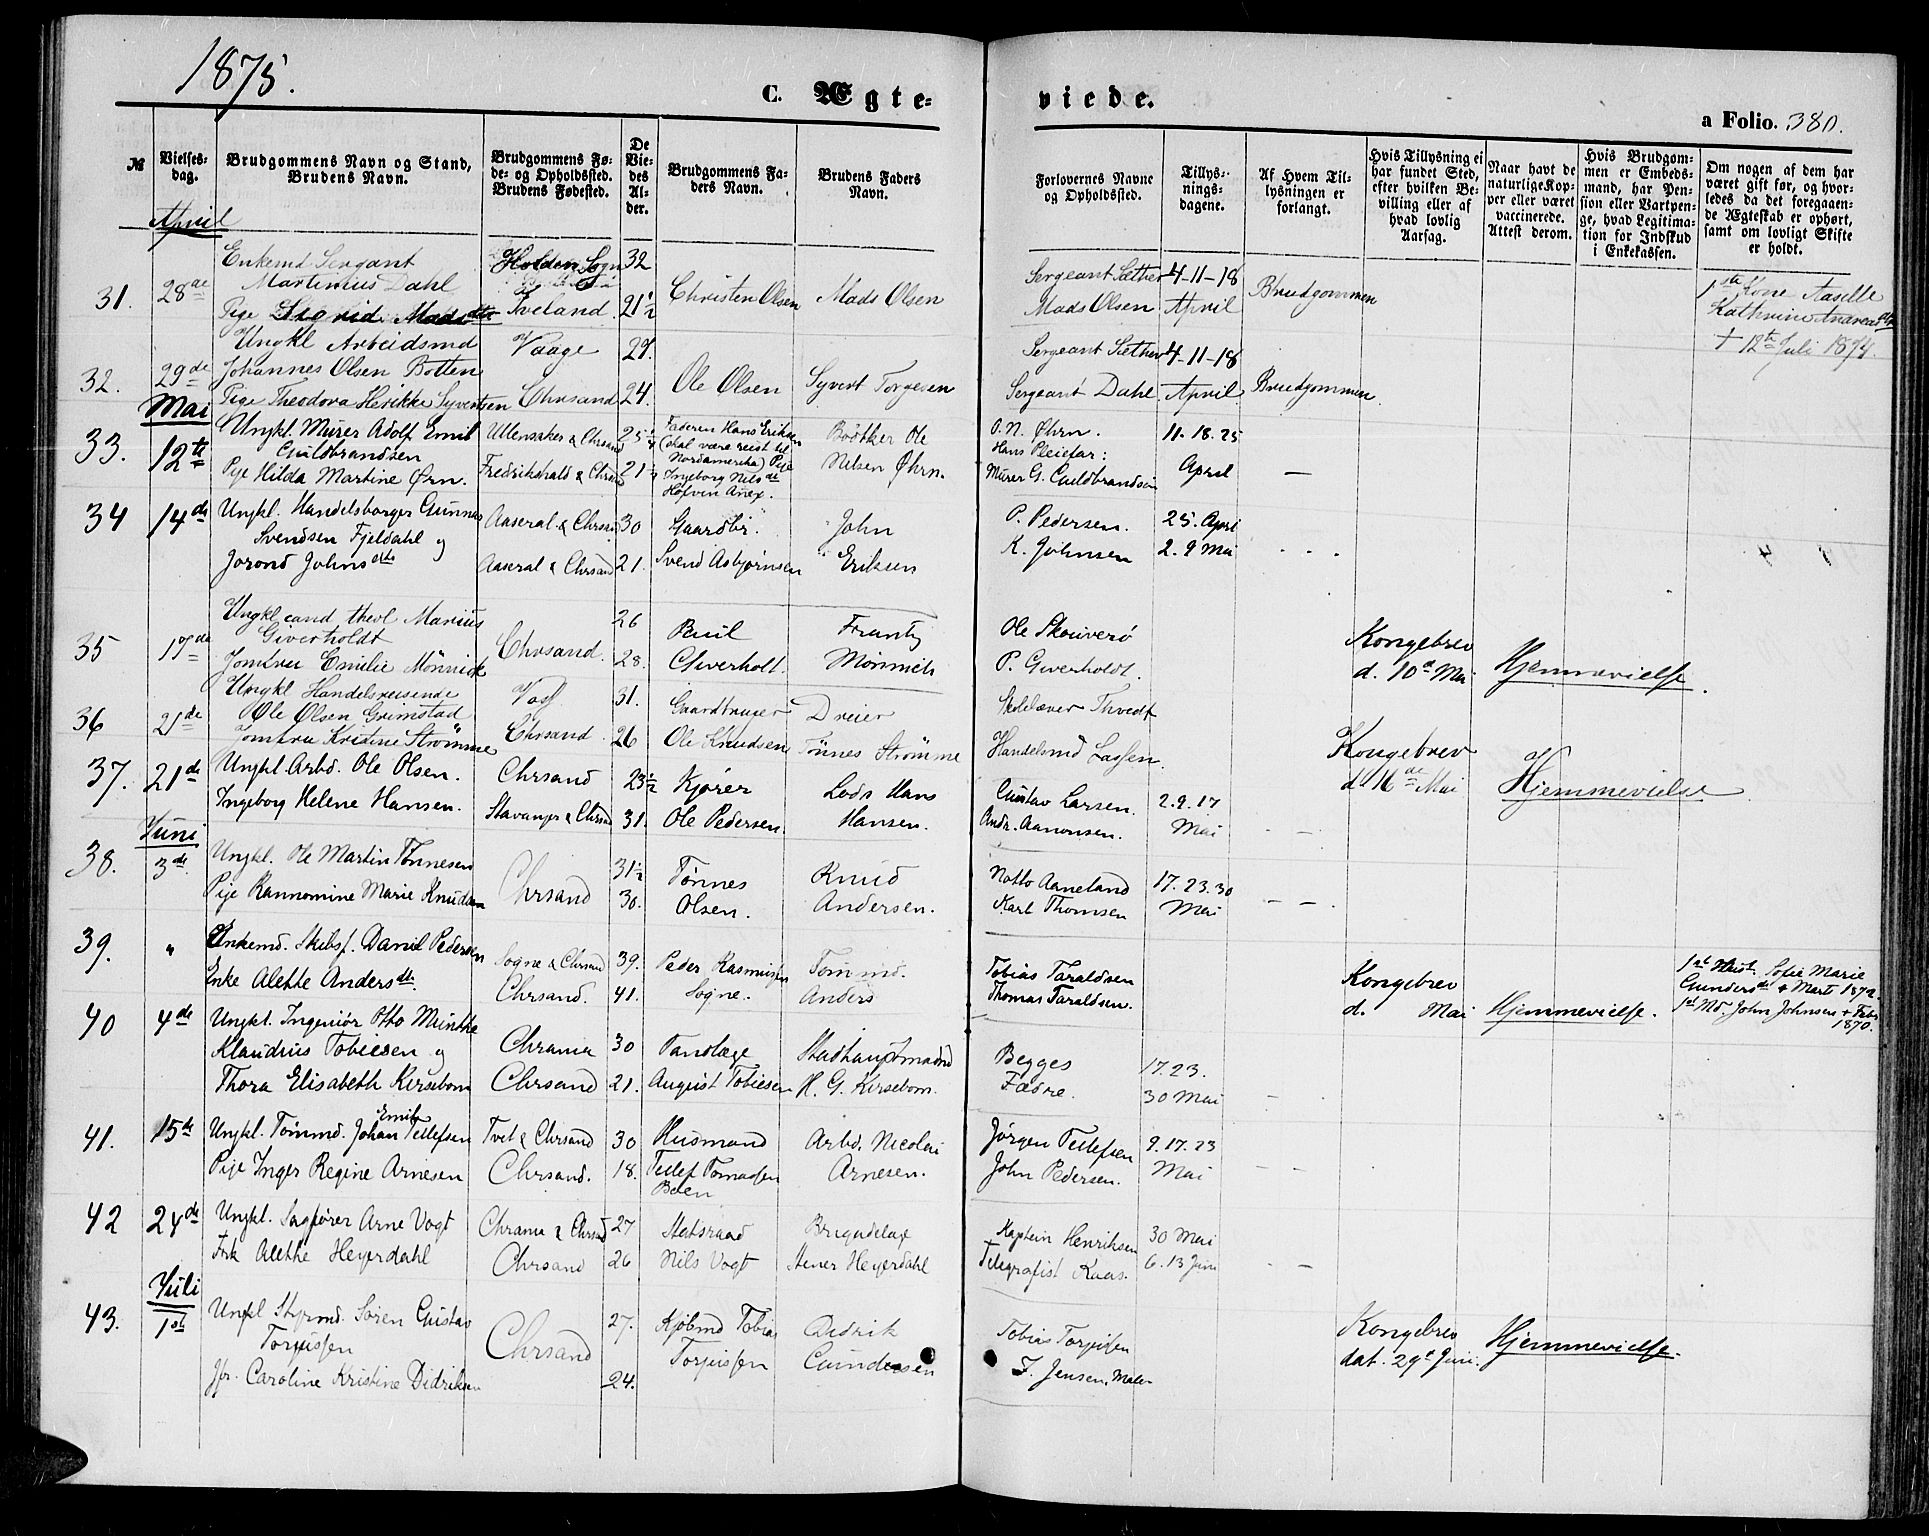 1875.
C. Ægte-
viede.
a Folio. 380.
№
Vielses-
dag.
Brudgommens Navn og Stand,
Brudens Navn.
Brudgommens Fø-
de- og Opholdssted.
Brudens Fødested.
De
Vie-
des
Al-
der.
Brudgommens Fa-
ders Navn.
Brudens Faders
Navn.
Forlovernes Navne
og Opholdssted.
Tillys-
nings-
dagene.
Af Hvem Til-
lysningen er
forlangt.
Hvis Tillysning ei
har fundet Sted,
efter hvilken Be-
villing eller af
hvad lovlig
Aarsag.
Naar havt de
naturlige Kop-
per eller været
vaccinerede.
Attest derom.
Hvis Brudgom-
men er Embeds-
mand, har Pen-
sion eller Vartpen-
ge, hvad Legitima-
tion for Indskud
i Enkekassen.
Om nogen af dem har
været gift før, og hvor-
ledes da det foregaaen-
de Ægteskab er ophørt,
samt om lovligt Skifte
er holdt.
April
31. 28de
Enkemd Sergant
Martinius Dahl
Pige Sigrid Madsdtr
Holden Sogn 32
Iveland 21½
Christen Olsen Mads Olsen
Sergeant Sæther 4-11-18
Mads Olsen April Brudgommen
1ste Kone Aaselle
Kathrine Andreasdtr
† 12te Juli 1874.
32. 29de
Ungkl Arbeidsmd
Johannes Olsen Botten
Pige Theodora Henrikke Syvertsen
Vaage 29.
Chrsand 24.
Ole Olsen Syvert Torgesen
Sergeant Sæther 4-11-18
Sergeant Dahl April Brudgommen
Mai
33. 12te
Ungkl. Murer Adolf Emil
Guldbrandsen
Pige Hilda Martine Ørn.
Ullensaker & Chrsand 25¼
Fredrikshald & Chrsand 21½
Faderen Hans Eriksen
(skal være reist til
Nordamerika) Pige
Ingeborg Nilsdtr
Hofvin Anex.
Bødtker Ole
Nelsen Øhrn.
O. N. Øhrn.
Hans Pleiefar:
Murer G. Guldbrandsen
11. 18. 25
April —
34 14de
Ungkl. Handelsborger Gunnar
Svendsen Fjeldahl og
Jorond Johnsdtr
Aaseral & Chrsand 30
Aaseral & Chrsand 21.
Gaardbr.
Svend Asbjørnsen
John
Eriksen
P. Pedersen. 25. April
K. Johnsen 2. 9 Mai
35 17de
Ungkl cand theol Marius
Giverholdt
Jomfru Emilie Mönnich
Chrsand. 26
28.
Giverholt. Mönnich
Ole Skouverö
P. Giverholdt.
Kongebrev
d. 10de Mai Hjemmevielse.
36 21de
Ungkl Handelsreisende
Ole Olsen Grimstad
Jomfru Kristine Strömme
Voss 31.
Chrsand 26
Gaardbruger
Ole Knudsen
Dreier
Tönnes Strömme
Skolelærer Thvedt
Handelsmd Lassen.
Kongebrev
d. 16de Mai Hjemmevielse
37. 21de
Ungkl. Arbd. Ole Olsen.
Ingeborg Helene Hansen.
Chrsand 23½
Stavanger & Chrsand 31.
Kjører
Ole Pedersen
Lods Hans
Hansen.
Gustav Larsen. 2. 9. 17
Andr. Aanonsen. Mai
Juni
38. 3de
Ungkl. Ole Martin Tønnesen
Pige Rannomine Marie Knudsen
Chrsand 31½
30.
Tønnes
Olsen.
Knud
Andersen.
Notto Aaneland 17. 23. 30
Karl Thomsen Mai
39. "
Enkemd. Skibsf. Daniel Pedersen
Enke Alethe Andersdtr.
Sogne & Chrsand 39.
Chrsand. 41.
Peder Rasmussen
Sogne.
Tømmd.
Anders
Tobias Taraldsen
Thomas Taraldsen.
Kongebrev
d. Mai Hjemmevielse.
1st Hust. Sofie Marie
Gundersdtr † Marts 1872.
1st Md. John Johnsen † Febr
1870.
40 4de
Ungkl. Ingeniør Otto Munthe
Klaudius Tobiesen og
Thora Elisabeth Kirsebom
Chrania 30
Chrsand 21.
Tandlæge
August Tobiesen
Stadhauptmand
H. G. Kirsebom.
Begges
Fædre.
17. 23.
30 Mai
41. 15de
Ungkl. Tømmd. Johan Emil Tellefsen
Pige Inger Regine Arnesen
Tvet & Chrsand 30
Chrsand. 18.
Husmand
Tellef Tomassen
Boen
Arbd. Nicolai
Arnesen.
Jørgen Tellefsen 9. 17. 23
John Pedersen. Mai
42 24de
Ungkl. Sagfører Arne Vogt
Frk Alethe Heyerdahl
Chrania & Chrsand 27
Chrsand 26
Statsraad
Nils Vogt
Brigadelæge
Stener Heyerdahl
Kaptein Henriksen 30 Mai
Telegrafist Kaas. 6. 13 Juni
Juli
43. 1st
Ungkl Styrmd. Søren Gustav
Torjussen
Jfr. Caroline Kristine Didriksen
Chrsand 27.
24.
Kjøbmd Tobias
Torjussen
Didrik
Gundersen
Tobias Torjusen
J. Jensen. Maler
Kongebrev
dat. 29de Juni. Hjemmevielse.